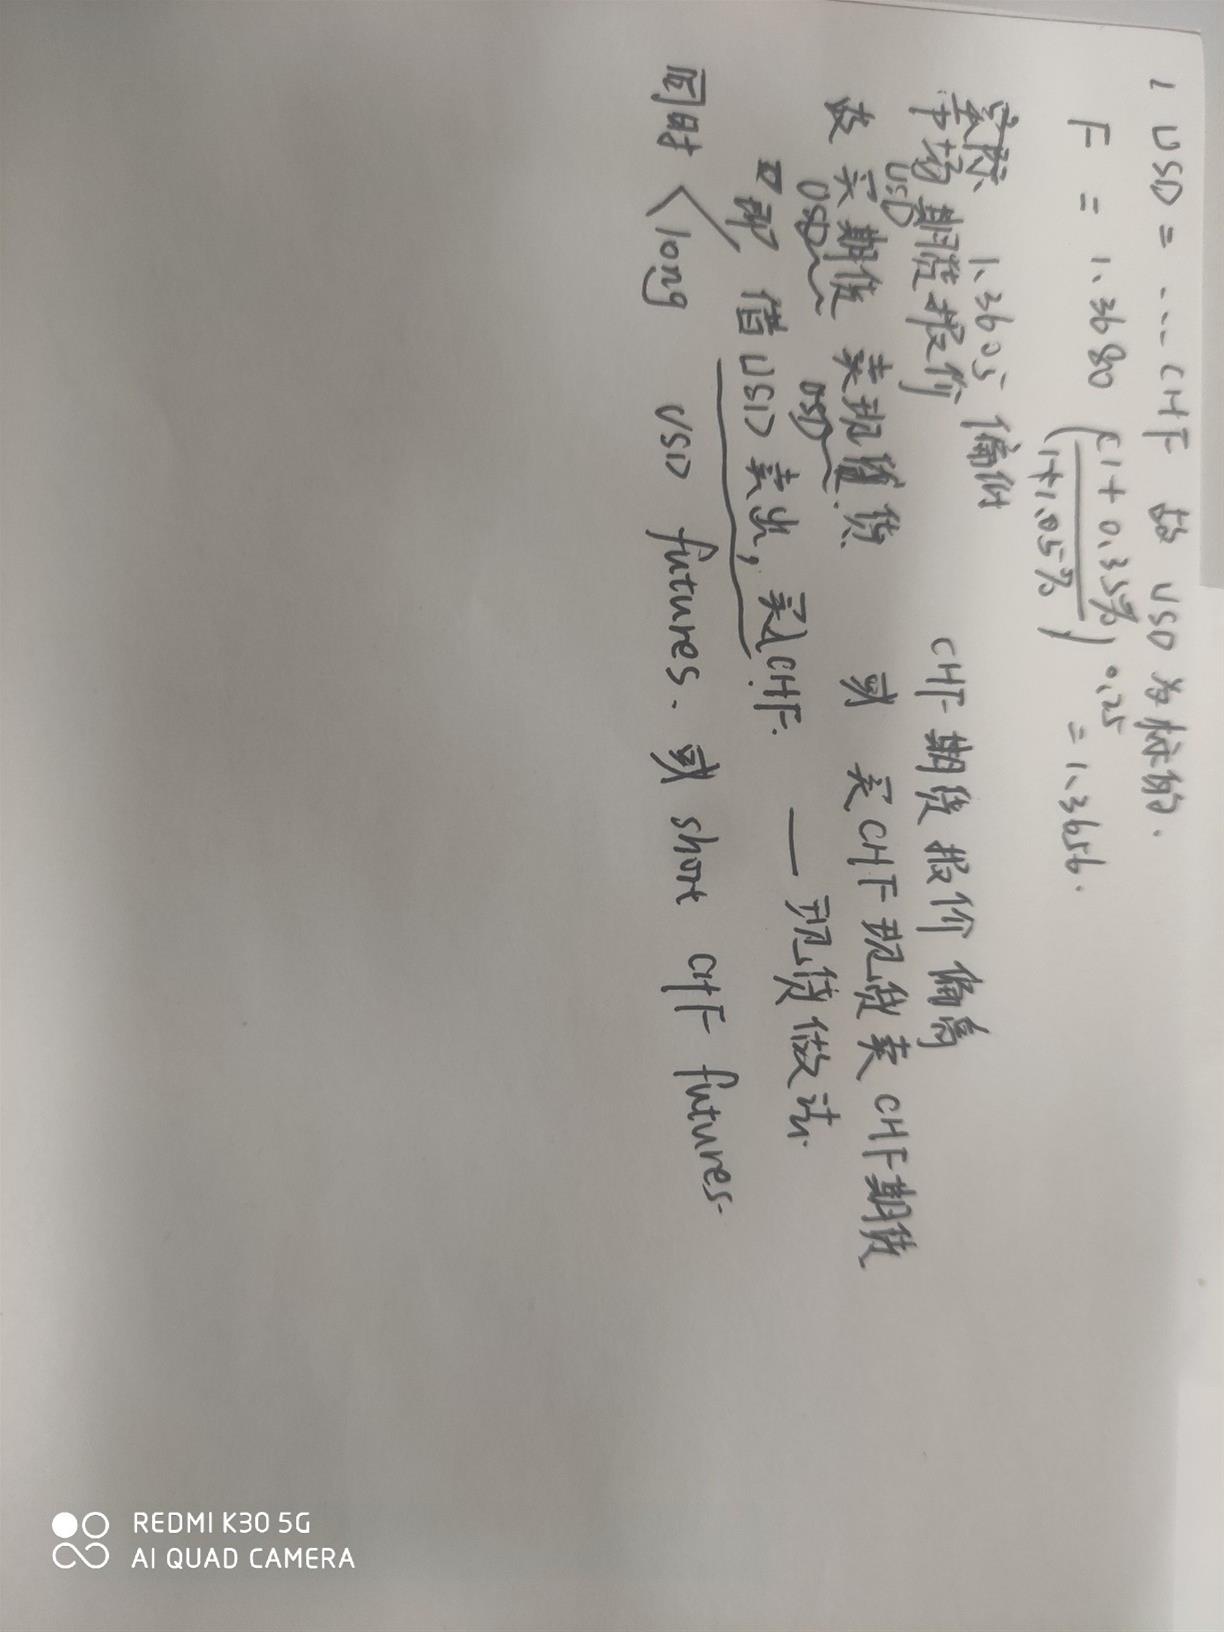 1 USD = ... CHF 故 USD 为标的.
F = 1.3680 (1+0.35% / 1+1.05%)^0.25 = 1.3656.
实际 1.3605 偏低
市场 USD 期货报价 CHF 期货报价偏高
故 买期货 卖现货. 或 买CHF现货卖CHF期货
USD USD
即 借USD卖出, 买入CHF. — 现货做法.
同时 < long USD futures. 或 short CHF futures.
REDMI K30 5G
AI QUAD CAMERA